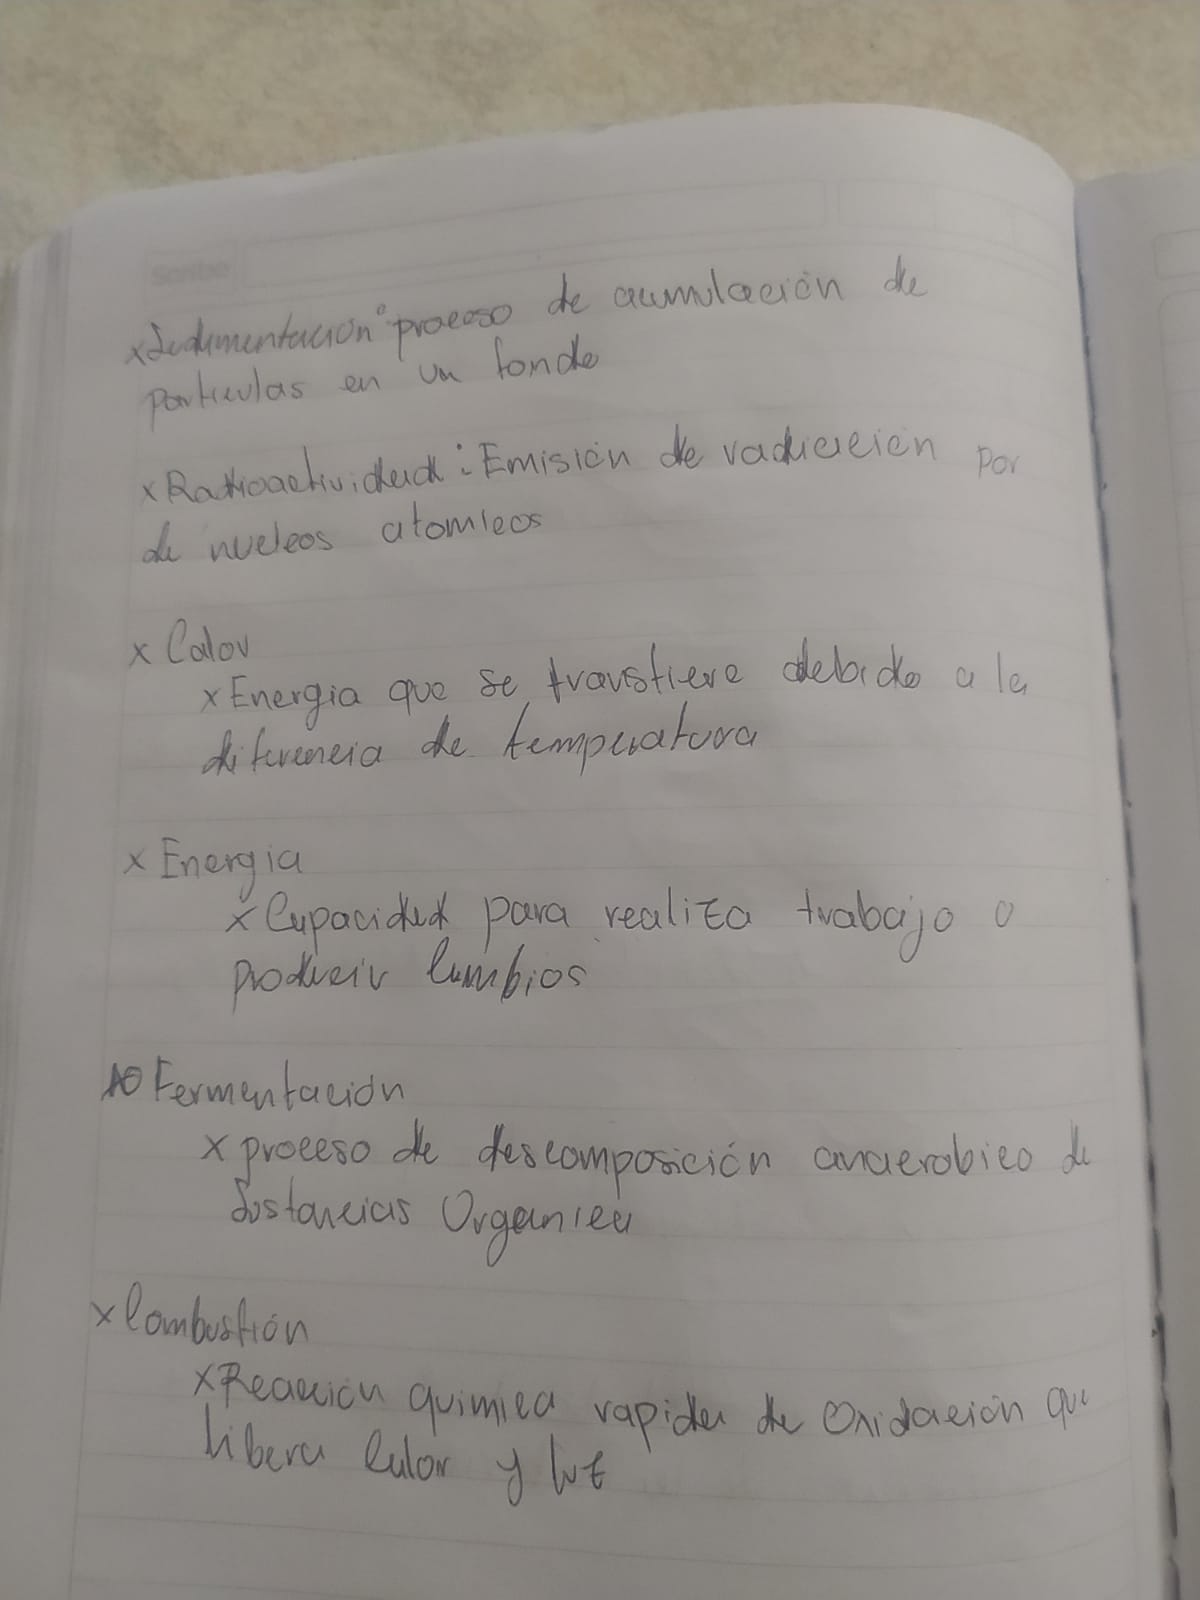 Scribe
x Sedimentación: proceso de acumulación de
particulas en un fondo
x Radioactividad: Emisión de radiación por
de nucleos atomicos
x Calor
x Energia que se transfiere debido a la
diferencia de temperatura
x Energia
x Capacidad para realiza trabajo o
producir Cambios
Fermentación
x proceso de descomposición anaerobico de
Sustancias Organica
x Combustión
x Reacción quimica rapida de Oxidación que
libera Calor y luz